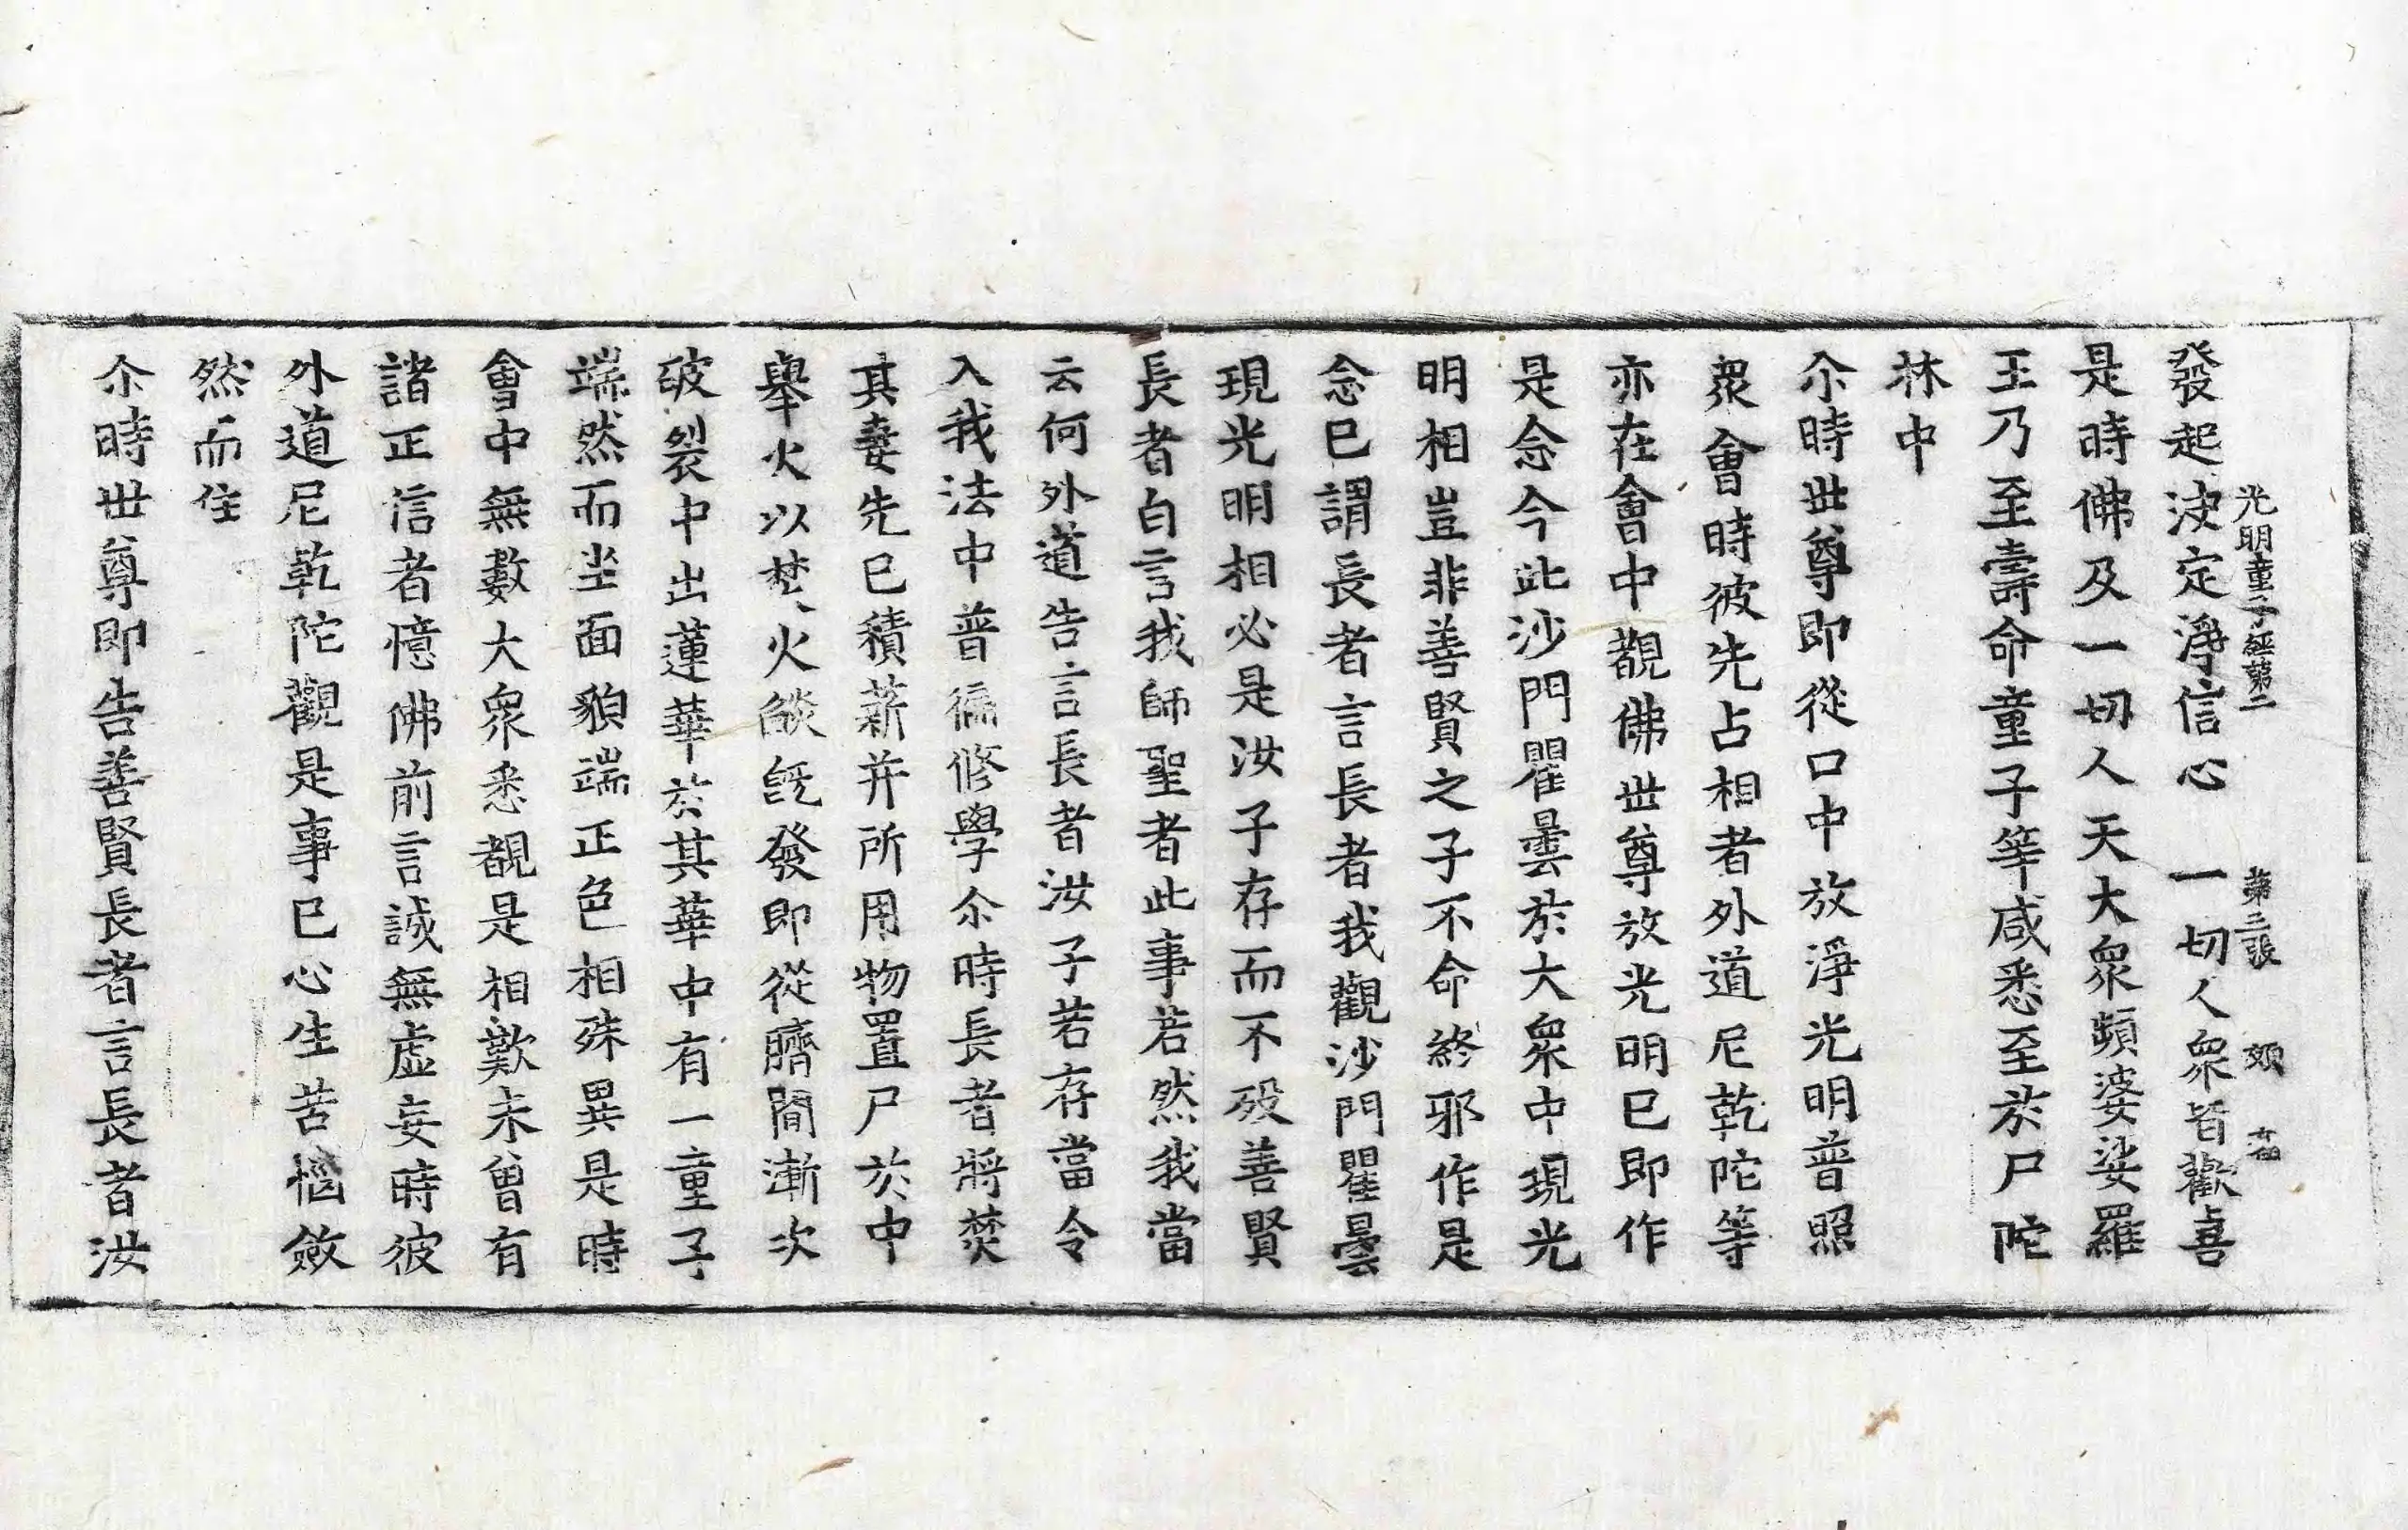 發起決定淨信心　一切人衆皆歡喜
光明童子經第二　第三張
是時佛及一切人天大衆頻婆娑羅
王乃至壽命童子等咸悉至於尸陀
林中
尒時世尊即從口中放淨光明普照
衆會時彼先占相者外道尼乾陀等
亦在會中觀佛世尊放光明已即作
是念今此沙門瞿曇於大衆中現光
明相豈非善賢之子不命終邪作是
念已謂長者言長者我觀沙門瞿曇
現光明相必是汝子存而不歿善賢
長者白言我師聖者此事若然我當
云何外道告言長者汝子若存當令
入我法中普徧修學尒時長者將焚
其妻先已積薪并所用物置尸於中
舉火以焚火燄旣發即從臍間漸次
破裂中出蓮華於其華中有一童子
端然而坐面貌端正色相殊異是時
會中無數大衆悉覩是相歎未曾有
諸正信者憶佛前言誠無虛妄時彼
外道尼乾陀觀是事已心生苦惱斂
然而住
尒時世尊即告善賢長者言長者汝